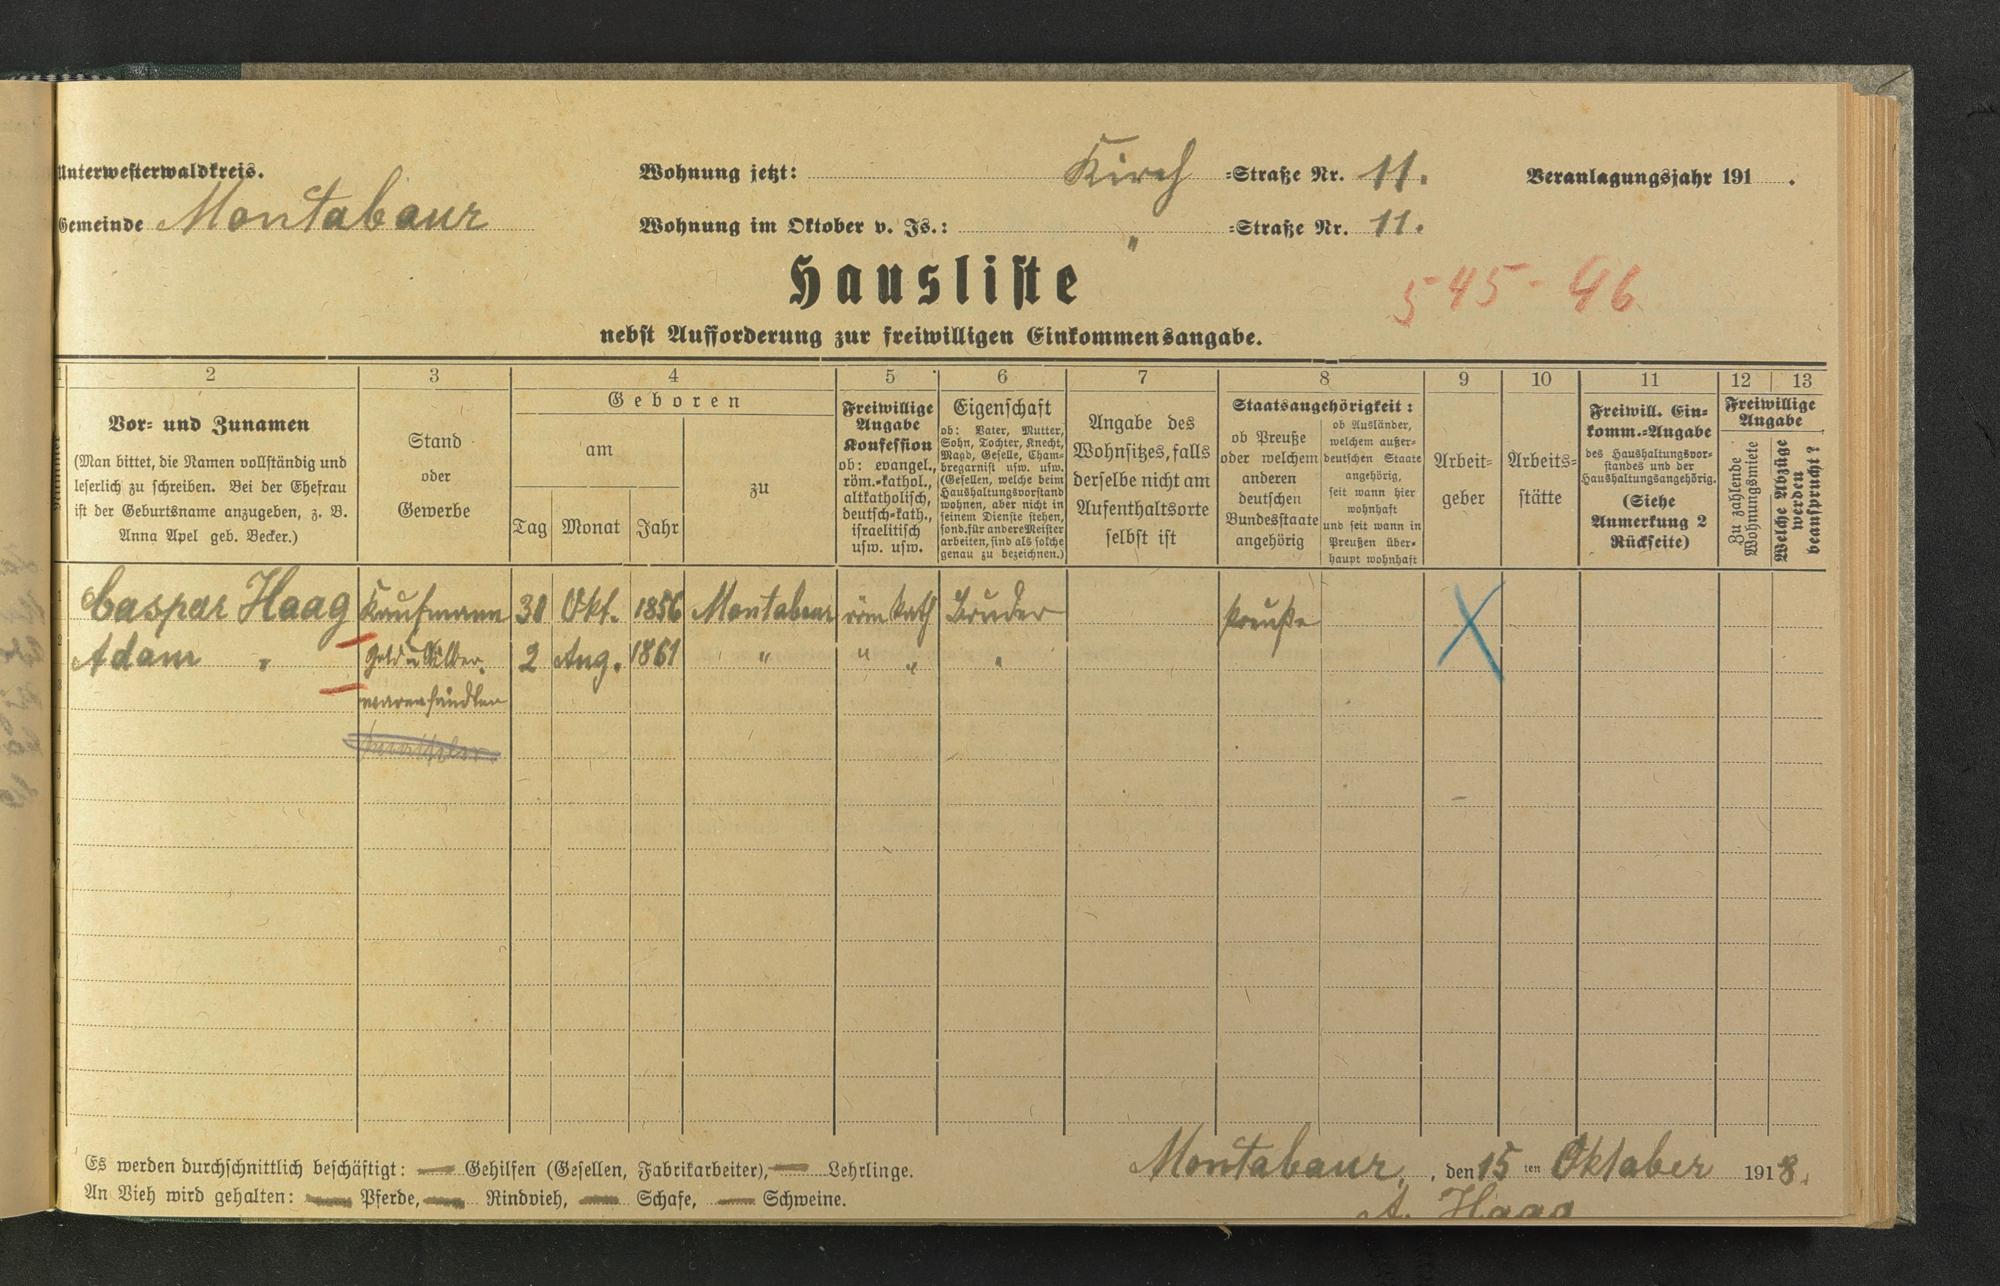 Unterwesterwaldkreis.
Wohnung jetzt: Kirch =Straße Nr. 11.
Veranlagungsjahr 191 .
Gemeinde Montabaur
Wohnung im Oktober v. Js.: " =Straße Nr. 11.
Hausliste
545-46
nebst Aufforderung zur freiwilligen Einkommensangabe.
1 2 3 4 5 6 7 8 9 10 11 12 13
Nummer
Vor- und Zunamen
(Man bittet, die Namen vollständig und
leserlich zu schreiben. Bei der Ehefrau
ist der Geburtsname anzugeben, z. B.
Anna Apel geb. Becker.)
Stand
oder
Gewerbe
Geboren
am
Tag Monat Jahr
zu
Freiwillige
Angabe
Konfession
ob: evangel.,
röm.-kathol.,
altkatholisch,
deutsch-kath.,
israelitisch
usw. usw.
Eigenschaft
ob: Vater, Mutter,
Sohn, Tochter, Knecht,
Magd, Geselle, Cham-
bregarnist usw. usw.
(Gesellen, welche beim
Haushaltungsvorstand
wohnen, aber nicht in
seinem Dienste stehen,
sond. für andere Meister
arbeiten, sind als solche
genau zu bezeichnen.)
Angabe des
Wohnsitzes, falls
derselbe nicht am
Aufenthaltsorte
selbst ist
Staatsangehörigkeit:
ob Preuße
oder welchem
anderen
deutschen
Bundesstaate
angehörig
ob Ausländer,
welchem außer-
deutschen Staate
angehörig,
seit wann hier
wohnhaft
und seit wann in
Preußen über-
haupt wohnhaft
Arbeit-
geber
Arbeits-
stätte
Freiwill. Ein-
komm.-Angabe
des Haushaltungsvor-
standes und der
Haushaltungsangehörig.
(Siehe
Anmerkung 2
Rückseite)
Freiwillige
Angabe
Zu zahlende
Wohnungsmiete
Welche Abzüge
werden
beansprucht?
1 Caspar Haag Kaufmann 30 Okt. 1856 Montabaur röm kath Bruder Preuße
2 Adam " Gold u Silber- 2 Aug. 1861 " " " "
3 warenhändler
4
5
7
Es werden durchschnittlich beschäftigt: — Gehilfen (Gesellen, Fabrikarbeiter), — Lehrlinge.
An Vieh wird gehalten: — Pferde, — Rindvieh, — Schafe, — Schweine.
Montabaur, den 15ten Oktober 1918.
A. Haag